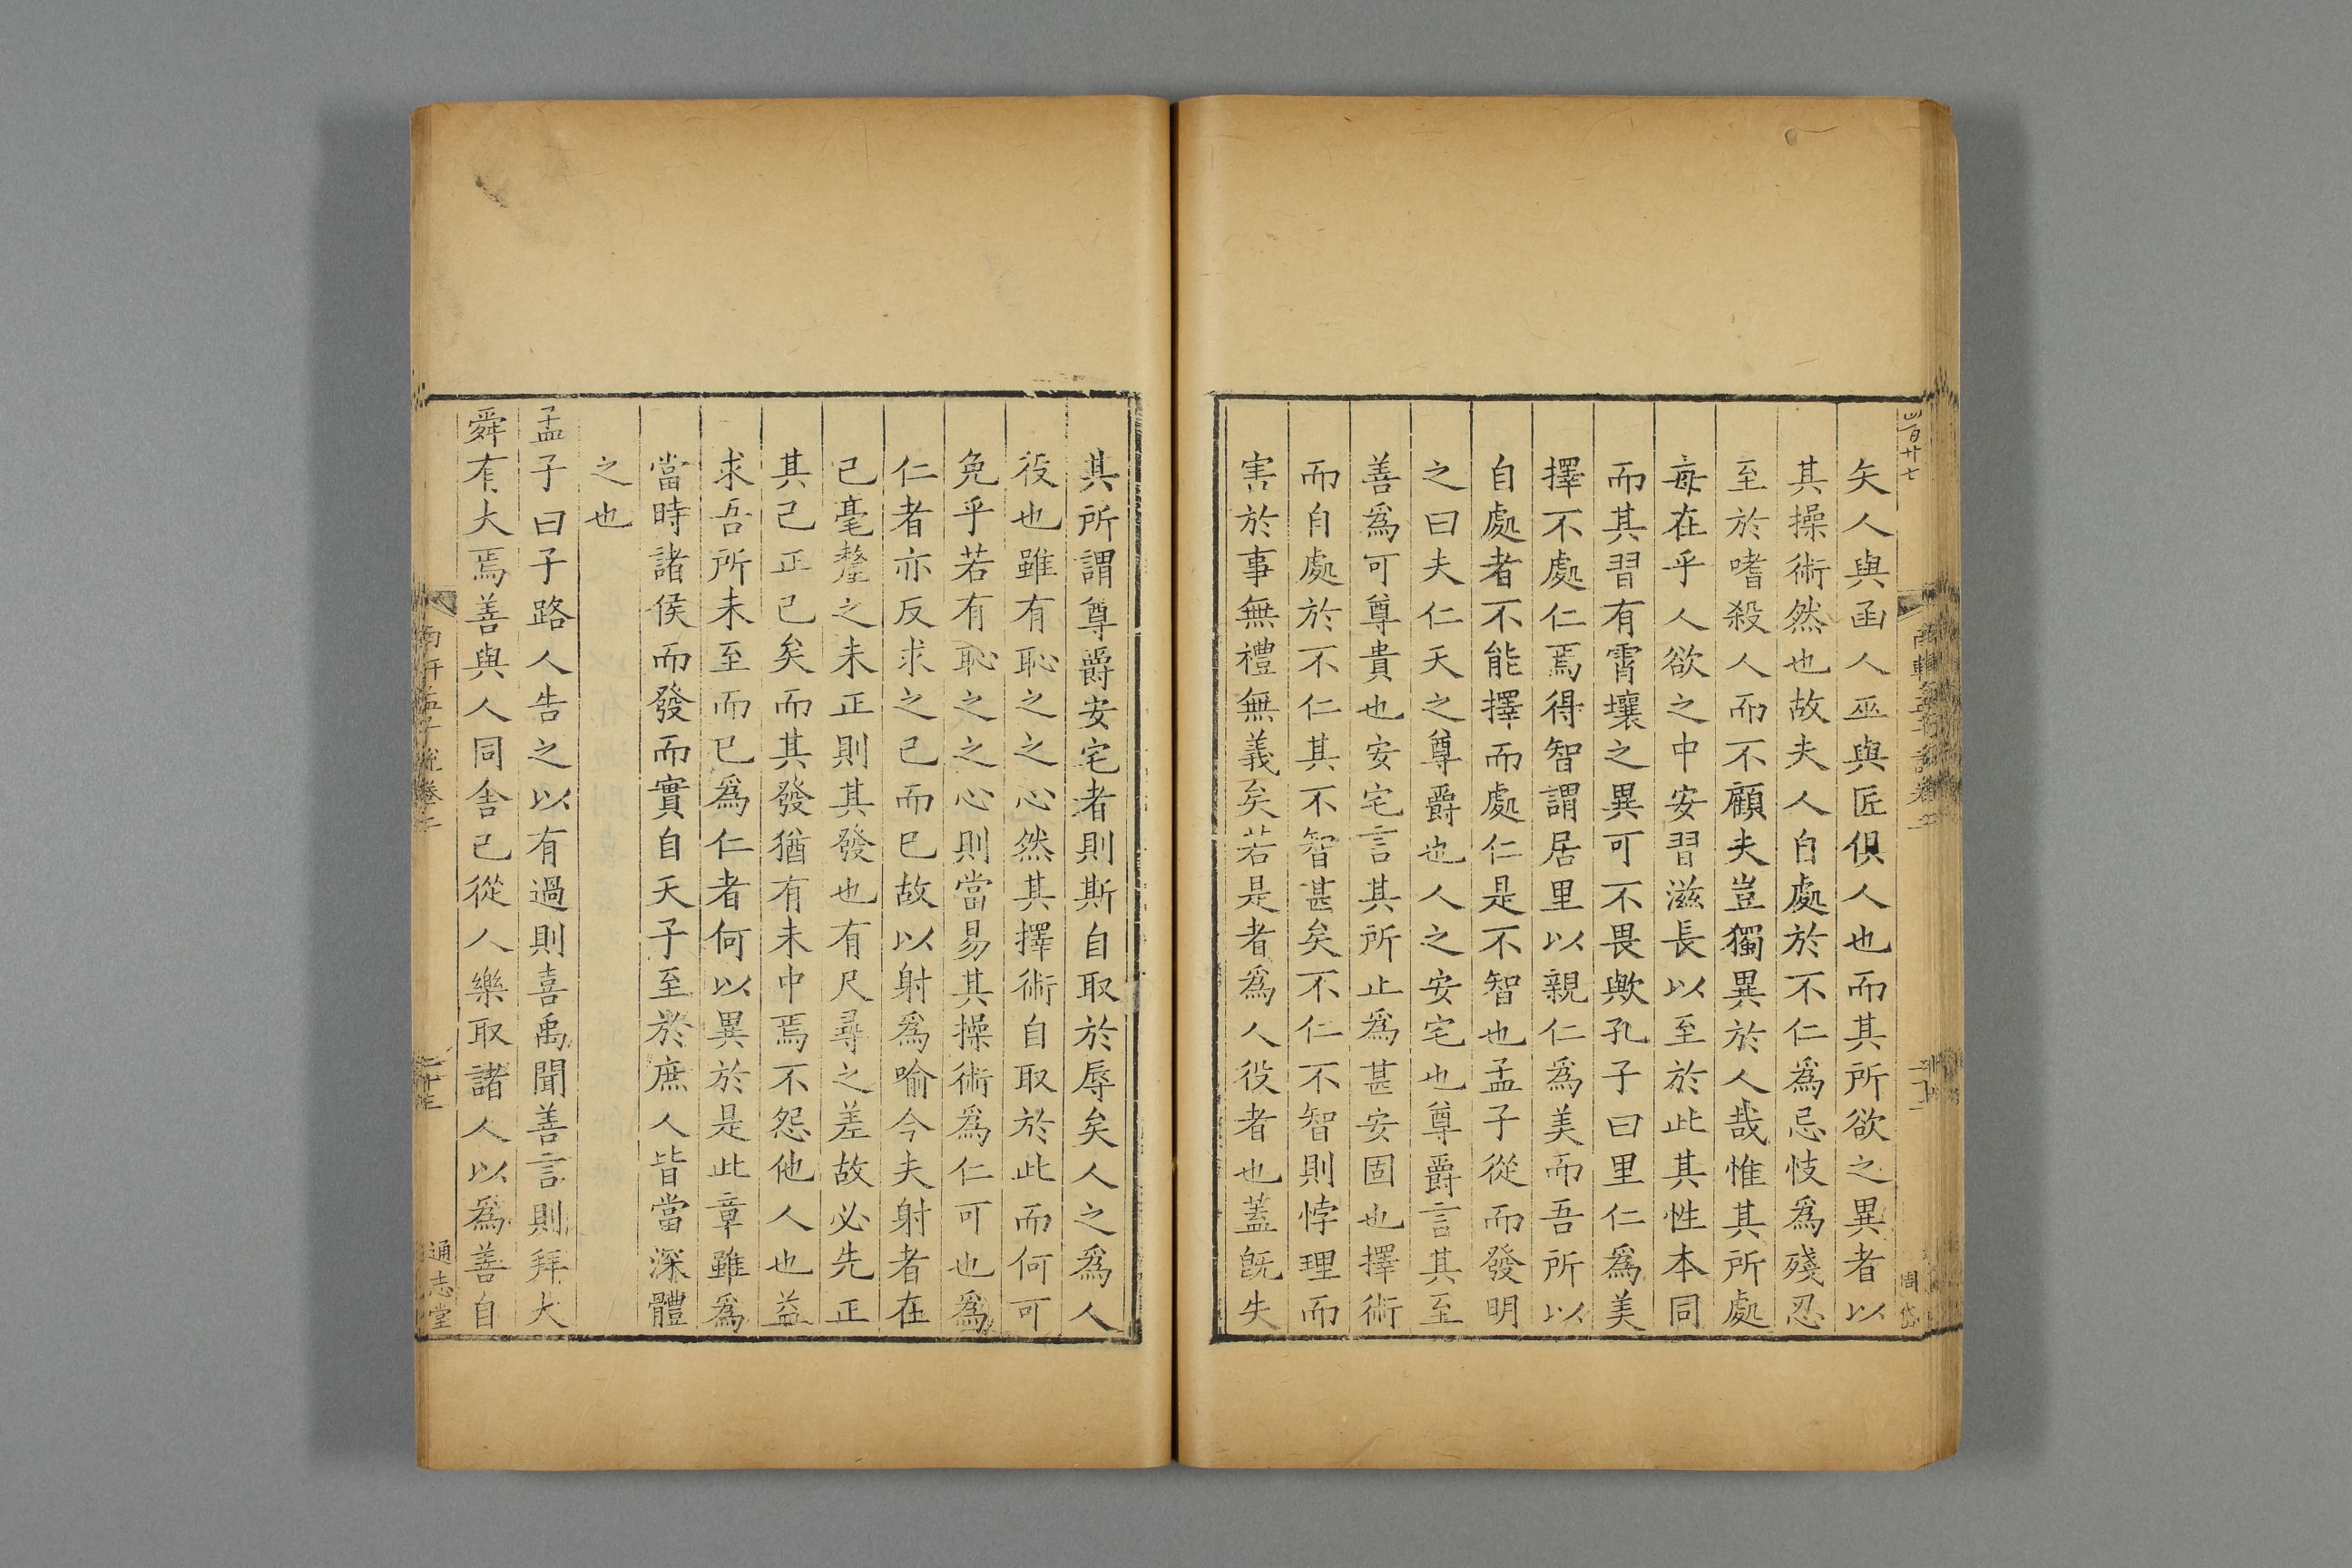 矢人與函人巫與匠俱人也而其所欲之異者以
其操術然也故夫人自處於不仁爲忌忮爲殘忍
至於嗜殺人而不顧夫豈獨異於人哉惟其所處
每在乎人欲之中安習滋長以至於此其性本同
而其習有霄壤之異可不畏歟孔子曰里仁爲美
擇不處仁焉得智謂居里以親仁爲美而吾所以
自處者不能擇而處仁是不智也孟子從而發明
之曰夫仁天之尊爵也人之安宅也尊爵言其至
善爲可尊貴也安宅言其所止爲甚安固也擇術
而自處於不仁其不智甚矣不仁不智則悖理而
害於事無禮無義矣若是者爲人役者也蓋旣失
其所謂尊爵安宅者則斯自取於辱矣人之爲人
役也雖有恥之之心然其擇術自取於此而何可
免乎若有恥之之心則當易其操術爲仁可也爲
仁者亦反求之己而已故以射爲喻今夫射者在
己毫釐之未正則其發也有尺尋之差故必先正
其己正己矣而其發猶有未中焉不怨他人也益
求吾所未至而已爲仁者何以異於是此章雖爲
當時諸侯而發而實自天子至於庶人皆當深體
之也
孟子曰子路人告之以有過則喜禹聞善言則拜大
舜有大焉善與人同舍己從人樂取諸人以爲善自
南軒孟子說卷二
通志堂